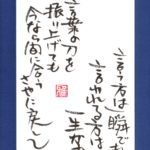 言う方は一瞬で
言われてる方は
一生
言葉の刀を
振り上げても
今なら間に合う
さやに戻